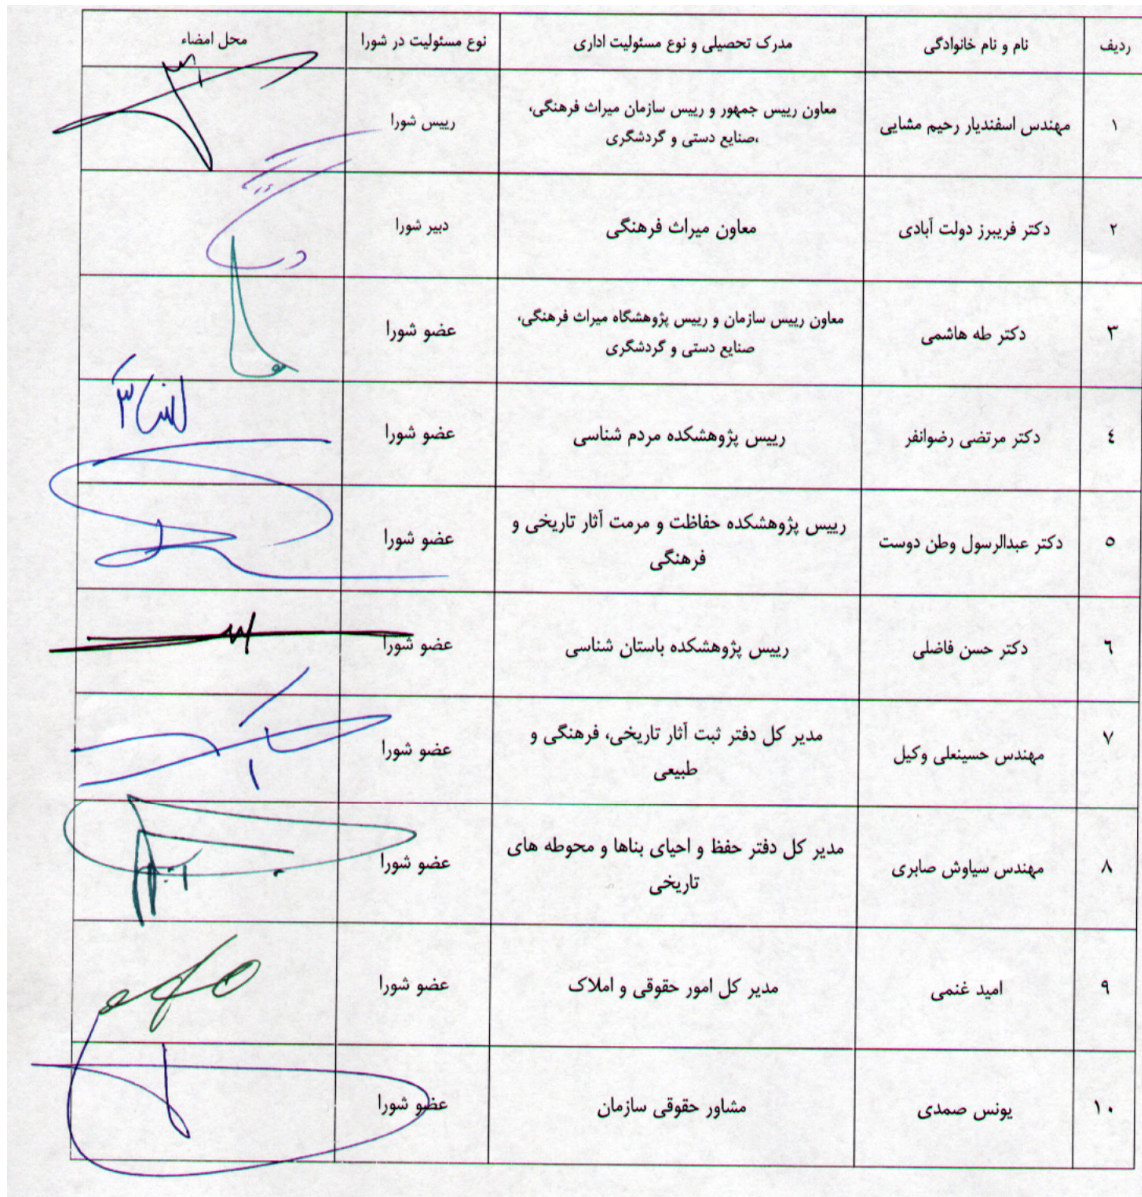 ردیف نام و نام خانوادگی مدرک تحصیلی و نوع مسئولیت اداری نوع مسئولیت در شورا محل امضاء
۱ مهندس اسفندیار رحیم مشایی معاون رییس جمهور و رییس سازمان میراث فرهنگی، رییس شورا
،صنایع دستی و گردشگری
۲ دکتر فریبرز دولت آبادی معاون میراث فرهنگی دبیر شورا
۳ دکتر طه هاشمی معاون رییس سازمان و رییس پژوهشگاه میراث فرهنگی، عضو شورا
صنایع دستی و گردشگری
٤ دکتر مرتضی رضوانفر رییس پژوهشکده مردم شناسی عضو شورا
٥ دکتر عبدالرسول وطن دوست رییس پژوهشکده حفاظت و مرمت آثار تاریخی و عضو شورا
فرهنگی
٦ دکتر حسن فاضلی رییس پژوهشکده باستان شناسی عضو شورا
۷ مهندس حسینعلی وکیل مدیر کل دفتر ثبت آثار تاریخی، فرهنگی و عضو شورا
طبیعی
۸ مهندس سیاوش صابری مدیر کل دفتر حفظ و احیای بناها و محوطه های عضو شورا
تاریخی
۹ امید غنمی مدیر کل امور حقوقی و املاک عضو شورا
۱۰ یونس صمدی مشاور حقوقی سازمان عضو شورا